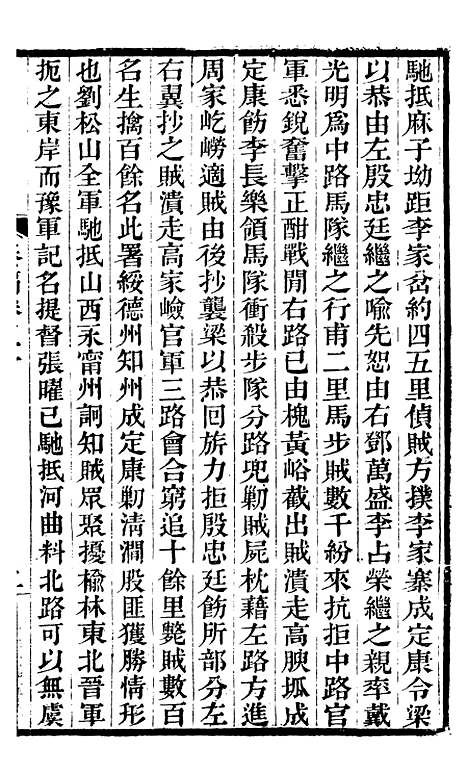 馳抵麻子坳距李家岔約四五里偵賊方撲李家寨成定康令梁
以恭由左殷忠廷繼之喻先恕由右鄧萬盛李占榮繼之親率戴
光明爲中路馬隊繼之行甫二里馬步賊數千紛來抗拒中路官
軍悉銳奮擊正酣戰閒右路已由槐黃峪截出賊潰走高腴坬成
定康飭李長樂領馬隊衝殺步隊分路兜剿賊屍枕藉左路方進
周家屹嶗適賊由後抄襲梁以恭回旂力拒殷忠廷飭所部分左
右翼抄之賊潰走高家嶮官軍三路會合窮追十餘里斃賊數百
名生擒百餘名此署綏德州知州成定康剿淸澗股匪獲勝情形
也劉松山全軍馳抵山西永甯州詗知賊眾聚擾楡林東北晉軍
扼之東岸而豫軍記名提督張曜已馳抵河曲料北路可以無虞